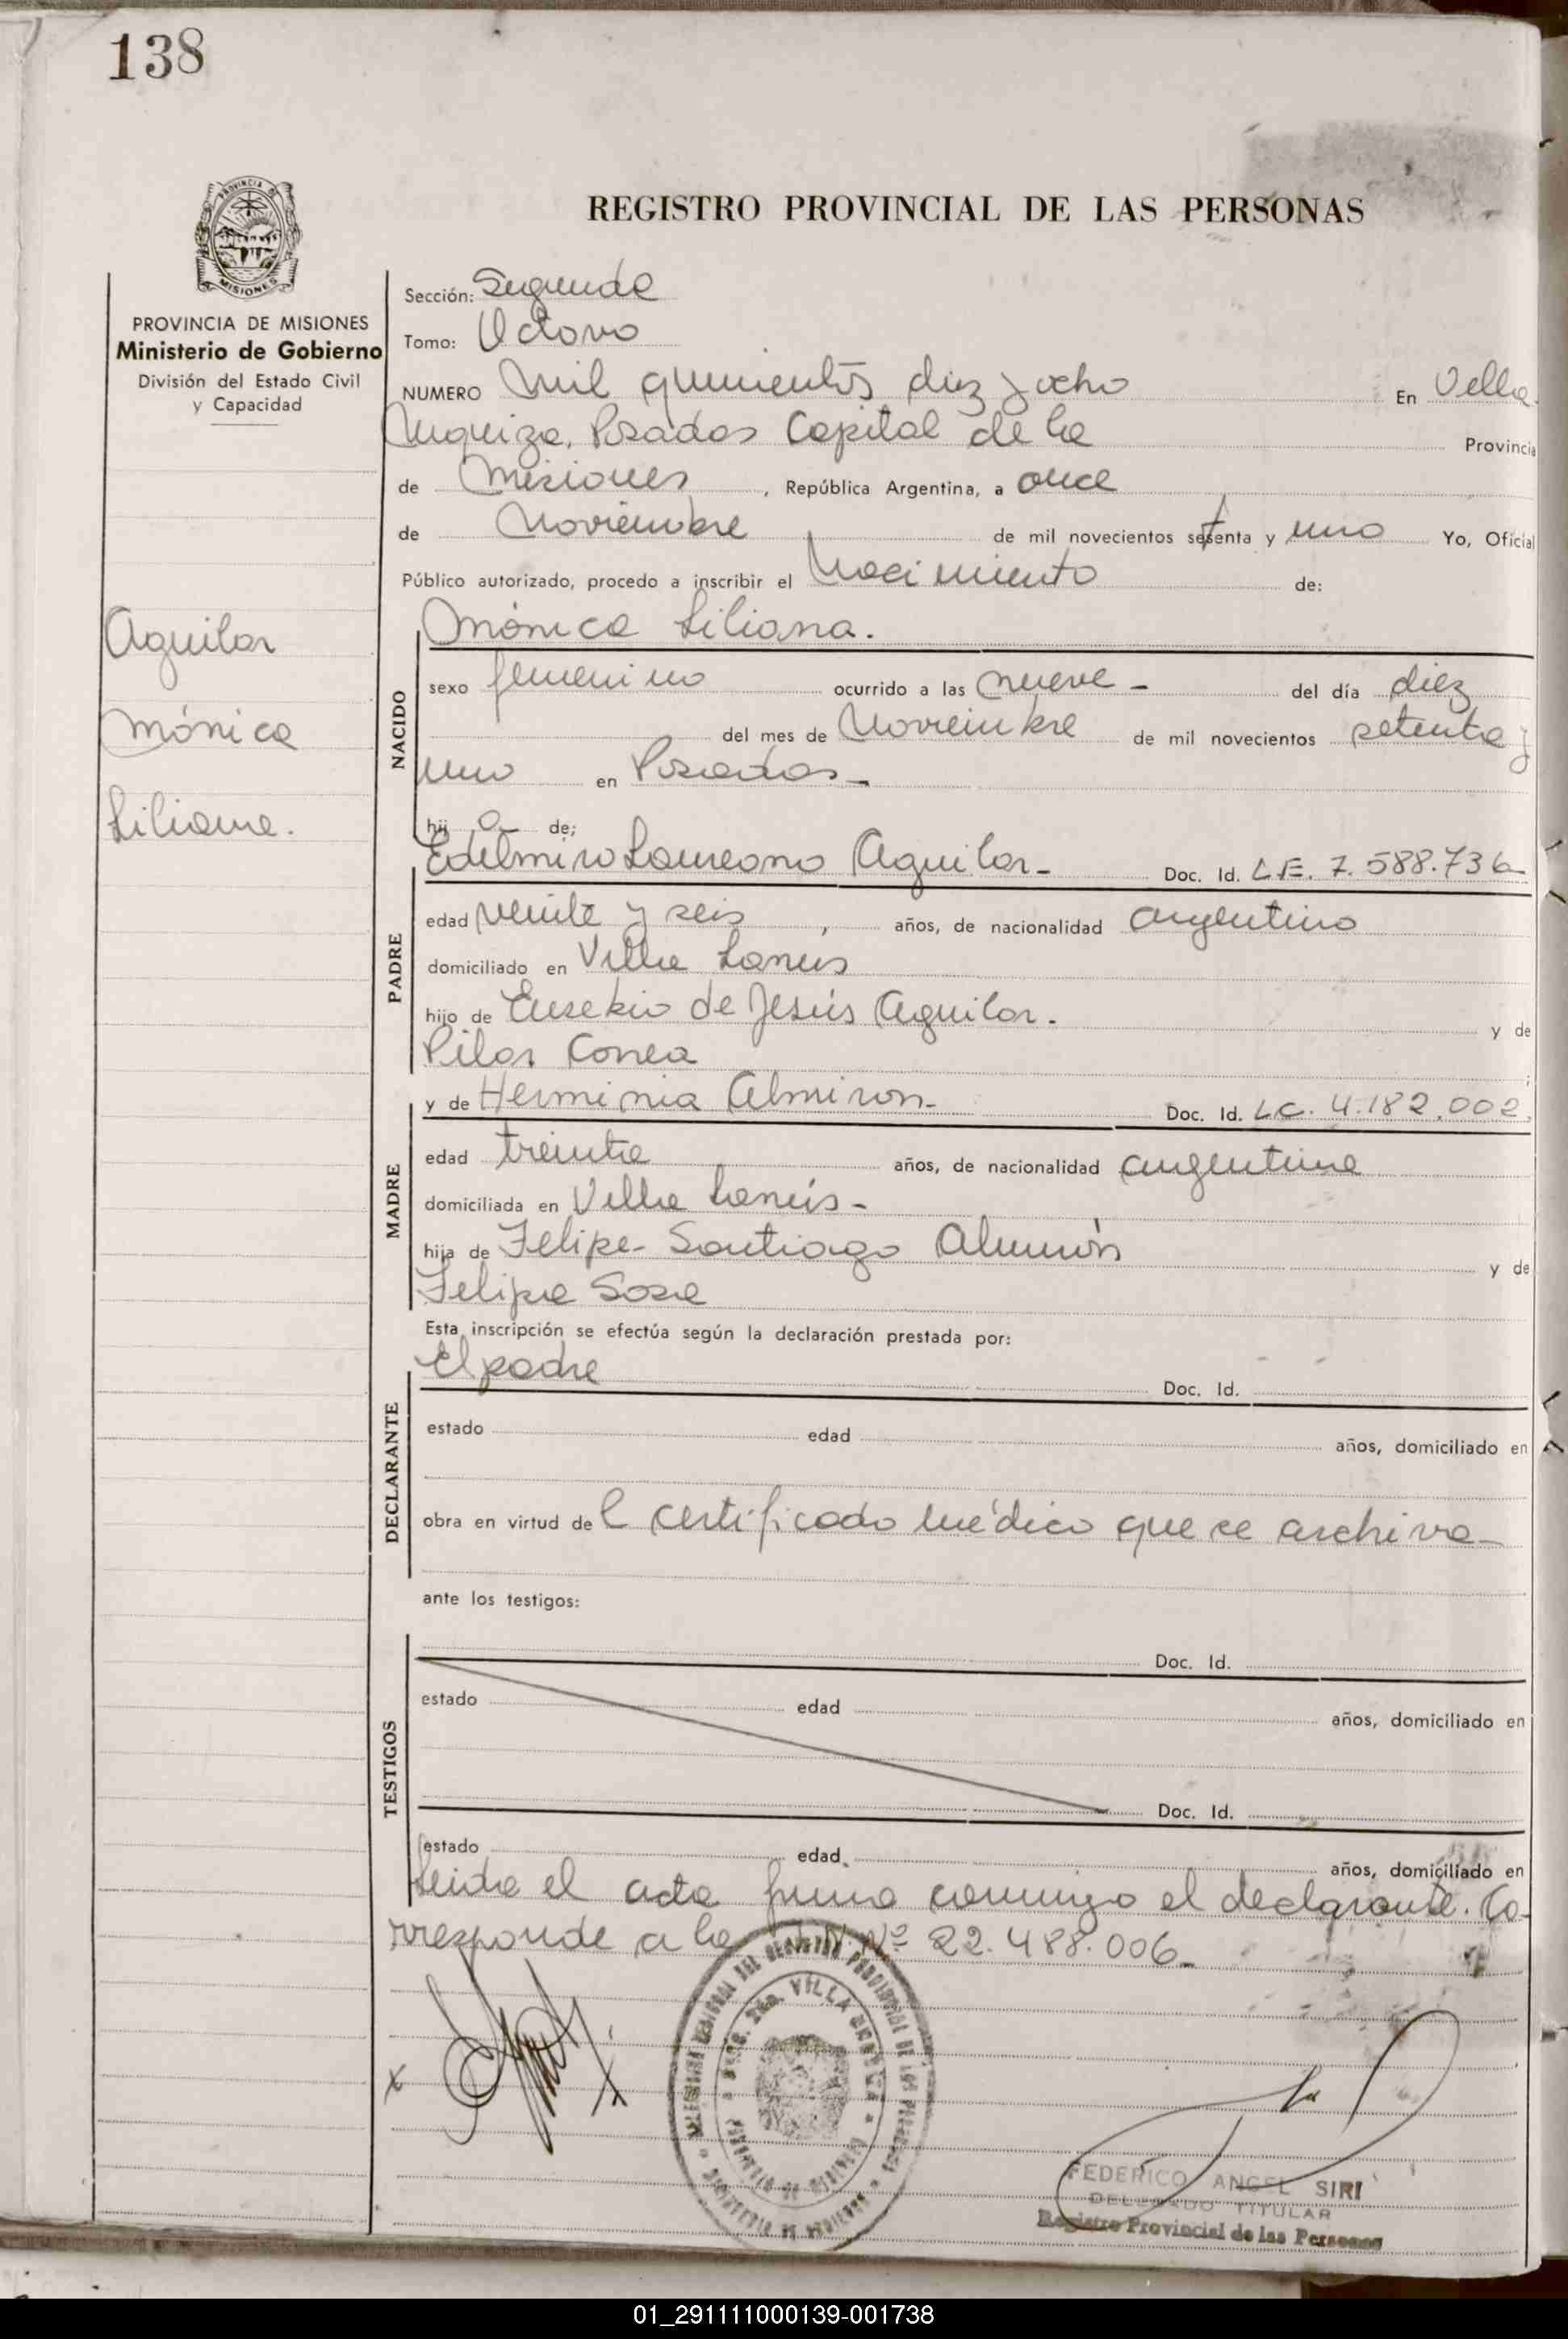 138
PROVINCIA DE
MISIONES
REGISTRO PROVINCIAL DE LAS PERSONAS
PROVINCIA DE MISIONES
Ministerio de Gobierno
División del Estado Civil
y Capacidad
Sección: Segunda
Tomo: Octavo
NUMERO Mil quinientos diez y ocho En Villa
Urquiza, Posadas Capital de la Provincia
de Misiones, República Argentina, a once
de Noviembre de mil novecientos setenta y uno Yo, Oficial
Público autorizado, procedo a inscribir el Nacimiento de:
Aguilar
Mónica
Liliana.
NACIDO
Mónica Liliana.
sexo femenino ocurrido a las nueve - del día diez
del mes de Noviembre de mil novecientos setenta y
uno en Posadas -
hij a de;
PADRE
Edelmiro Laureano Aguilar - Doc. Id. L.E. 7.588.736
edad veinte y seis, años, de nacionalidad argentino
domiciliado en Villa Lanús
hijo de Eusebio de Jesús Aguilar. y de
Pilar Correa ;
MADRE
y de Herminia Almiron - Doc. Id. L.C. 4.182.002.
edad treinta años, de nacionalidad argentina
domiciliada en Villa Lanús -
hija de Felipe Santiago Almirón y de
Felipa Sosa
Esta inscripción se efectúa según la declaración prestada por:
DECLARANTE
El padre Doc. Id.
estado edad años, domiciliado en
obra en virtud de l certificado médico que se archiva -
ante los testigos:
TESTIGOS
Doc. Id.
estado edad años, domiciliado en
Doc. Id.
estado edad años, domiciliado en
Leída el acta firma conmigo el declarante. Co-
rresponde a la Nº 22.488.006 -
x
VILLA
FEDERICO ANGEL SIRI
DELEGADO TITULAR
Registro Provincial de las Personas
01_291111000139-001738